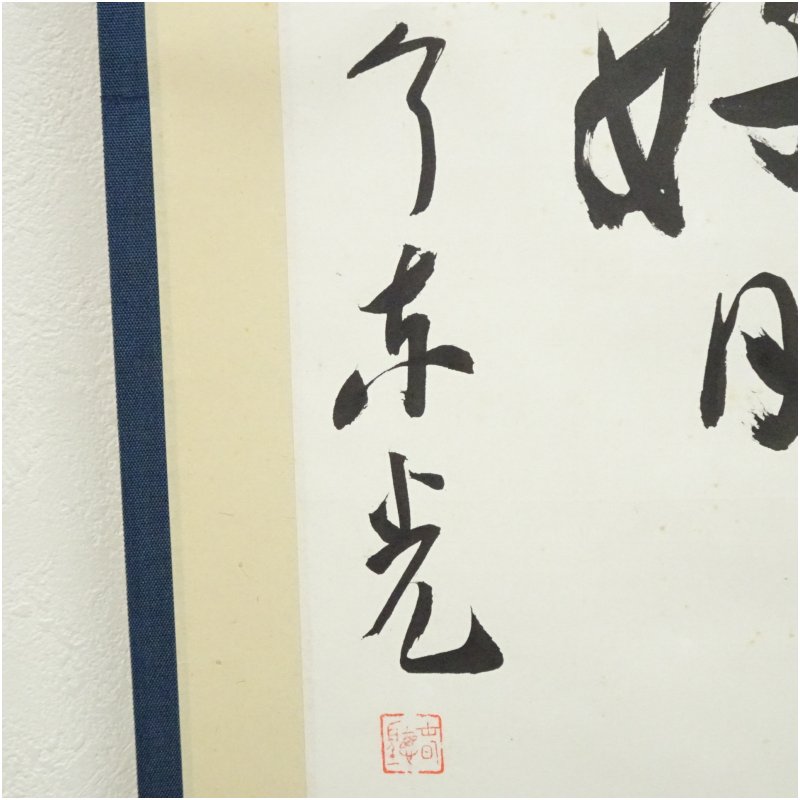 好日
了東光